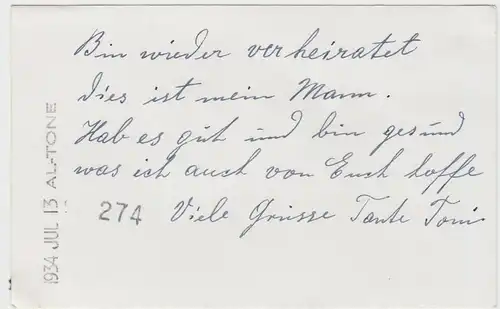 Bin wieder verheiratet
dies ist mein Mann.
Hab es gut und bin gesund
was ich auch von Euch hoffe
Viele Grüsse Tante Toni
274
1934 JUL 13 AL-TONE